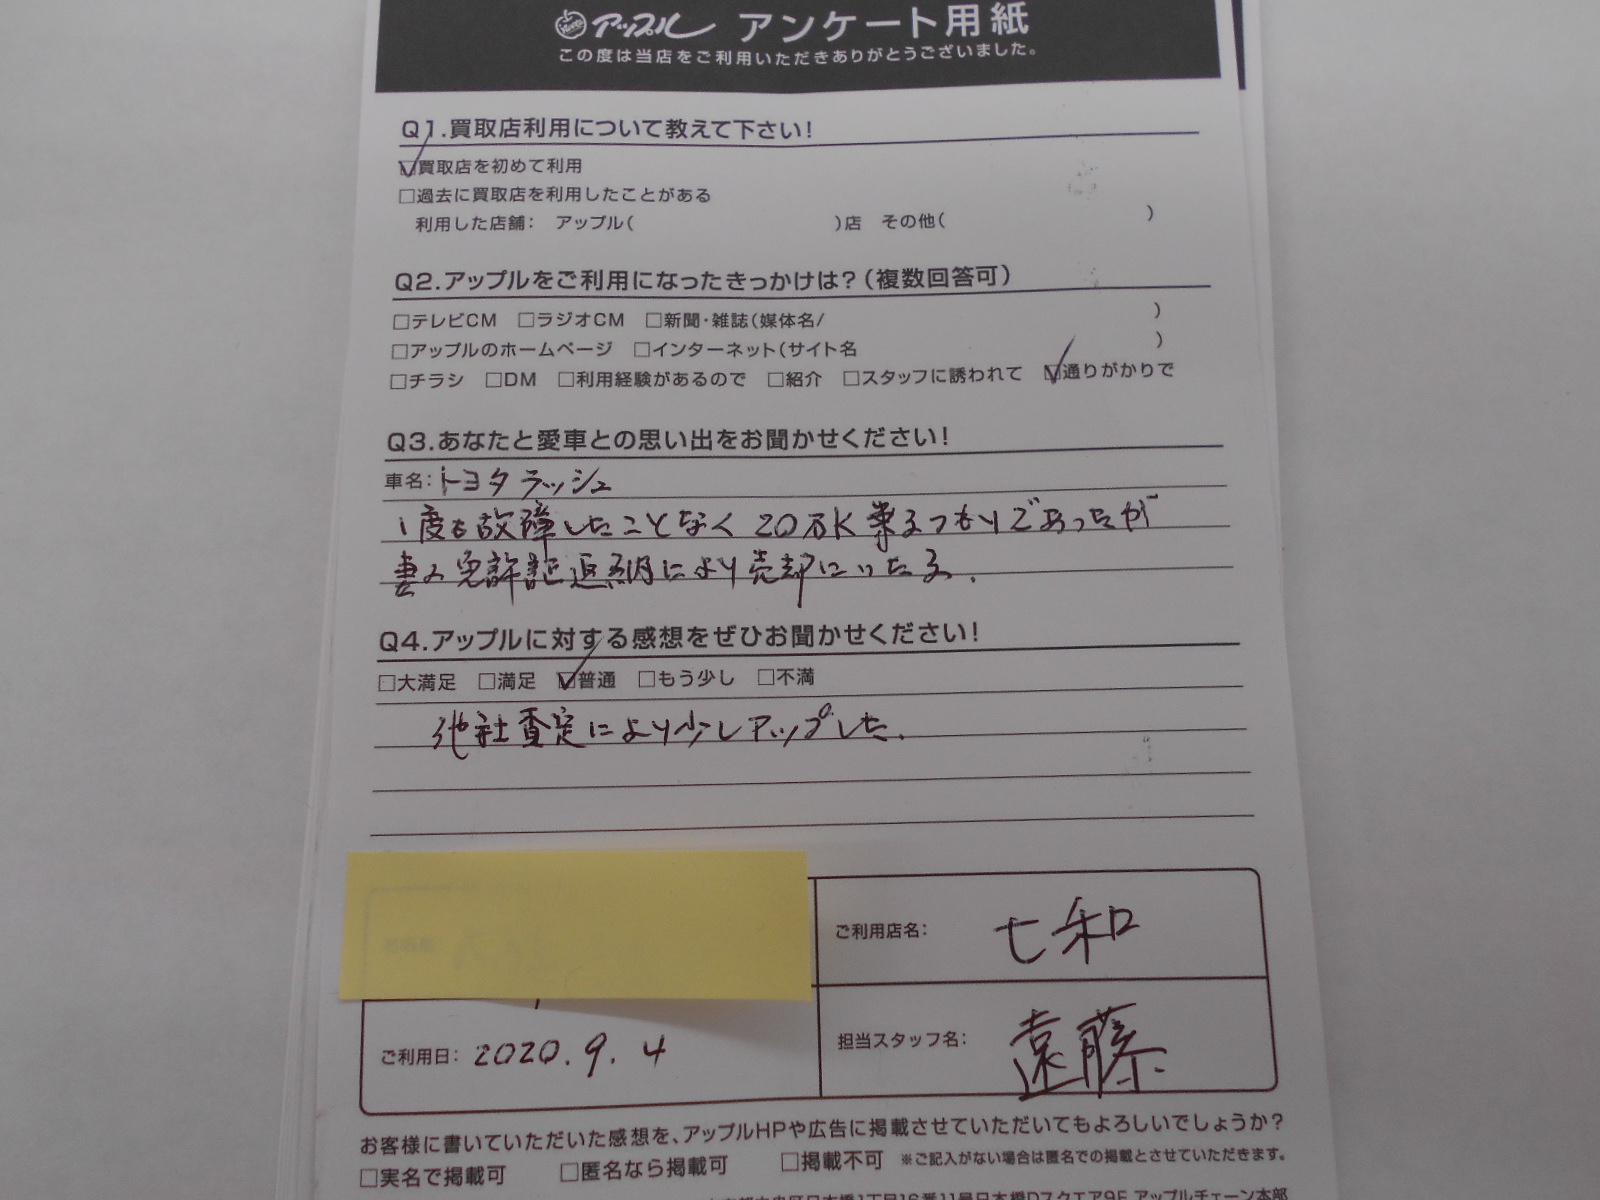 アップル アンケート用紙
この度は当店をご利用いただきありがとうございました。
Q1.買取店利用について教えて下さい!
☑買取店を初めて利用
□過去に買取店を利用したことがある
利用した店舗: アップル( )店 その他( )
Q2.アップルをご利用になったきっかけは?(複数回答可)
□テレビCM □ラジオCM □新聞・雑誌(媒体名/ )
□アップルのホームページ □インターネット(サイト名 )
□チラシ □DM □利用経験があるので □紹介 □スタッフに誘われて ☑通りがかりで
Q3.あなたと愛車との思い出をお聞かせください!
車名:トヨタ ラッシュ
1度も故障したことなく20万K乗るつもりであったが
妻の免許証返納により売却にいたる.
Q4.アップルに対する感想をぜひお聞かせください!
□大満足 □満足 ☑普通 □もう少し □不満
他社査定により少しアップした.
ご利用店名: 七和
ご利用日: 2020.9.4
担当スタッフ名: 遠藤
お客様に書いていただいた感想を、アップルHPや広告に掲載させていただいてもよろしいでしょうか?
□実名で掲載可 □匿名なら掲載可 □掲載不可 ※ご記入がない場合は匿名での掲載とさせていただきます。
日本橋1丁目16番11号日本橋Dスクエア9F アップルチェーン本部